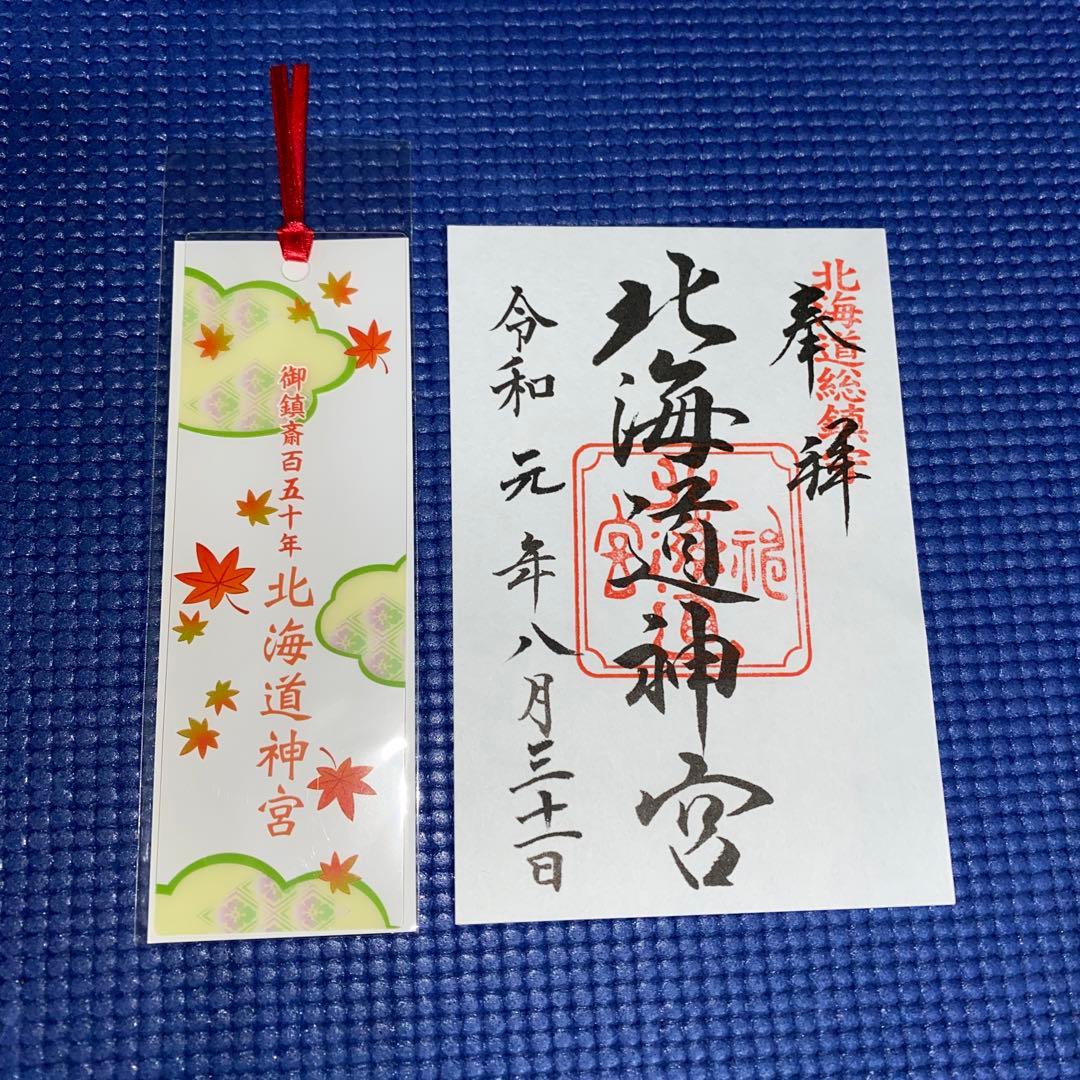 御鎮斎百五十年 北海道神宮
北海道総鎮守
奉拝
北海道神宮
令和元年八月三十一日